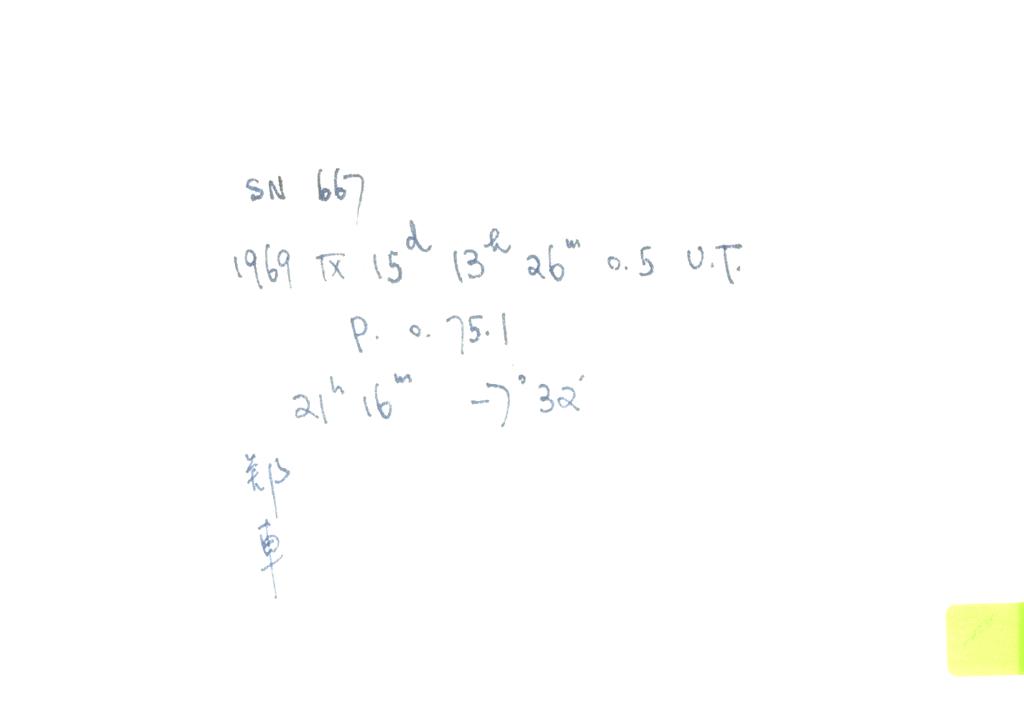 SN 667
1969 IX 15ᵈ 13ʰ 26ᵐ 0.5 U.T.
P. 0. 75.1
21ʰ 16ᵐ -7°32'
郑